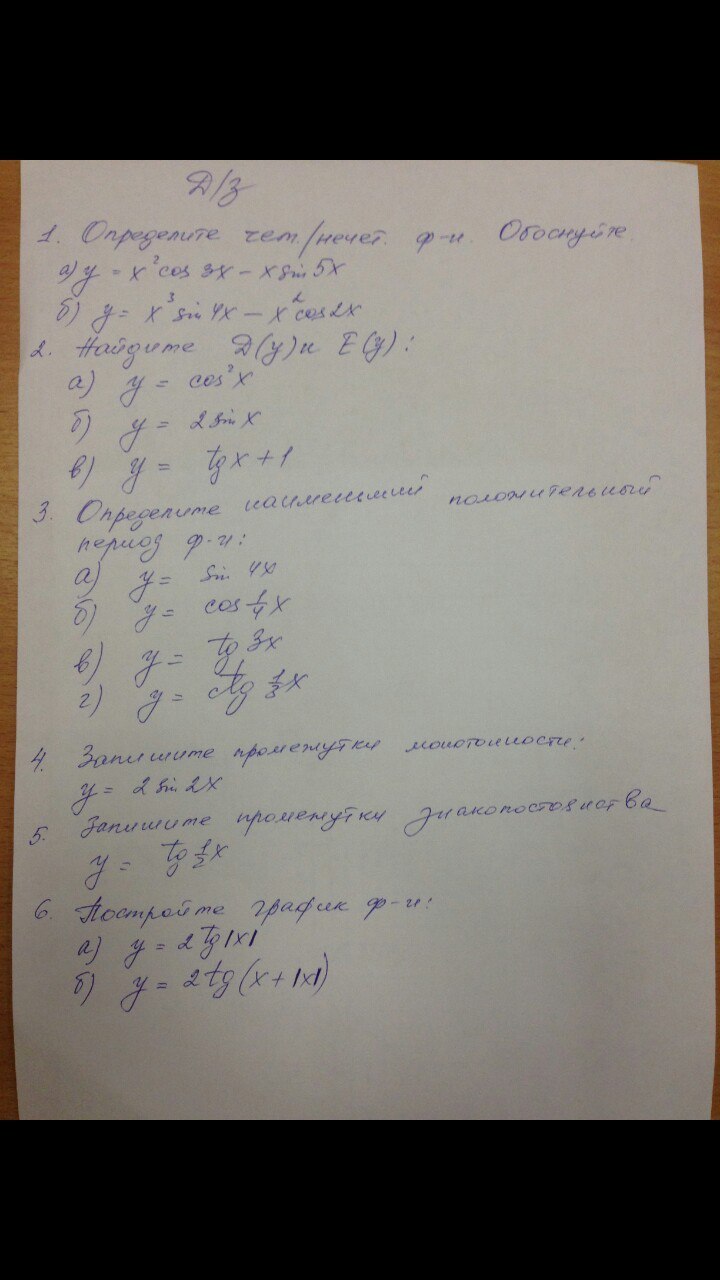 Д/з
1. Определите чет./нечет. ф-и. Обоснуйте.
а) y = x² cos 3x − x sin 5x
б) y = x³ sin 4x − x² cos 2x
2. Найдите D(y) и E(y):
а) y = cos² x
б) y = 2 sin x
в) y = tg x + 1
3. Определите наименьший положительный
период ф-и:
а) y = sin 4x
б) y = cos 1/4 x
в) y = tg 3x
г) y = ctg 1/3 x
4. Запишите промежутки монотонности:
y = 2 sin 2x
5. Запишите промежутки знакопостоянства
y = tg 1/2 x
6. Постройте график ф-и:
а) y = 2 tg |x|
б) y = 2 tg (x + |x|)